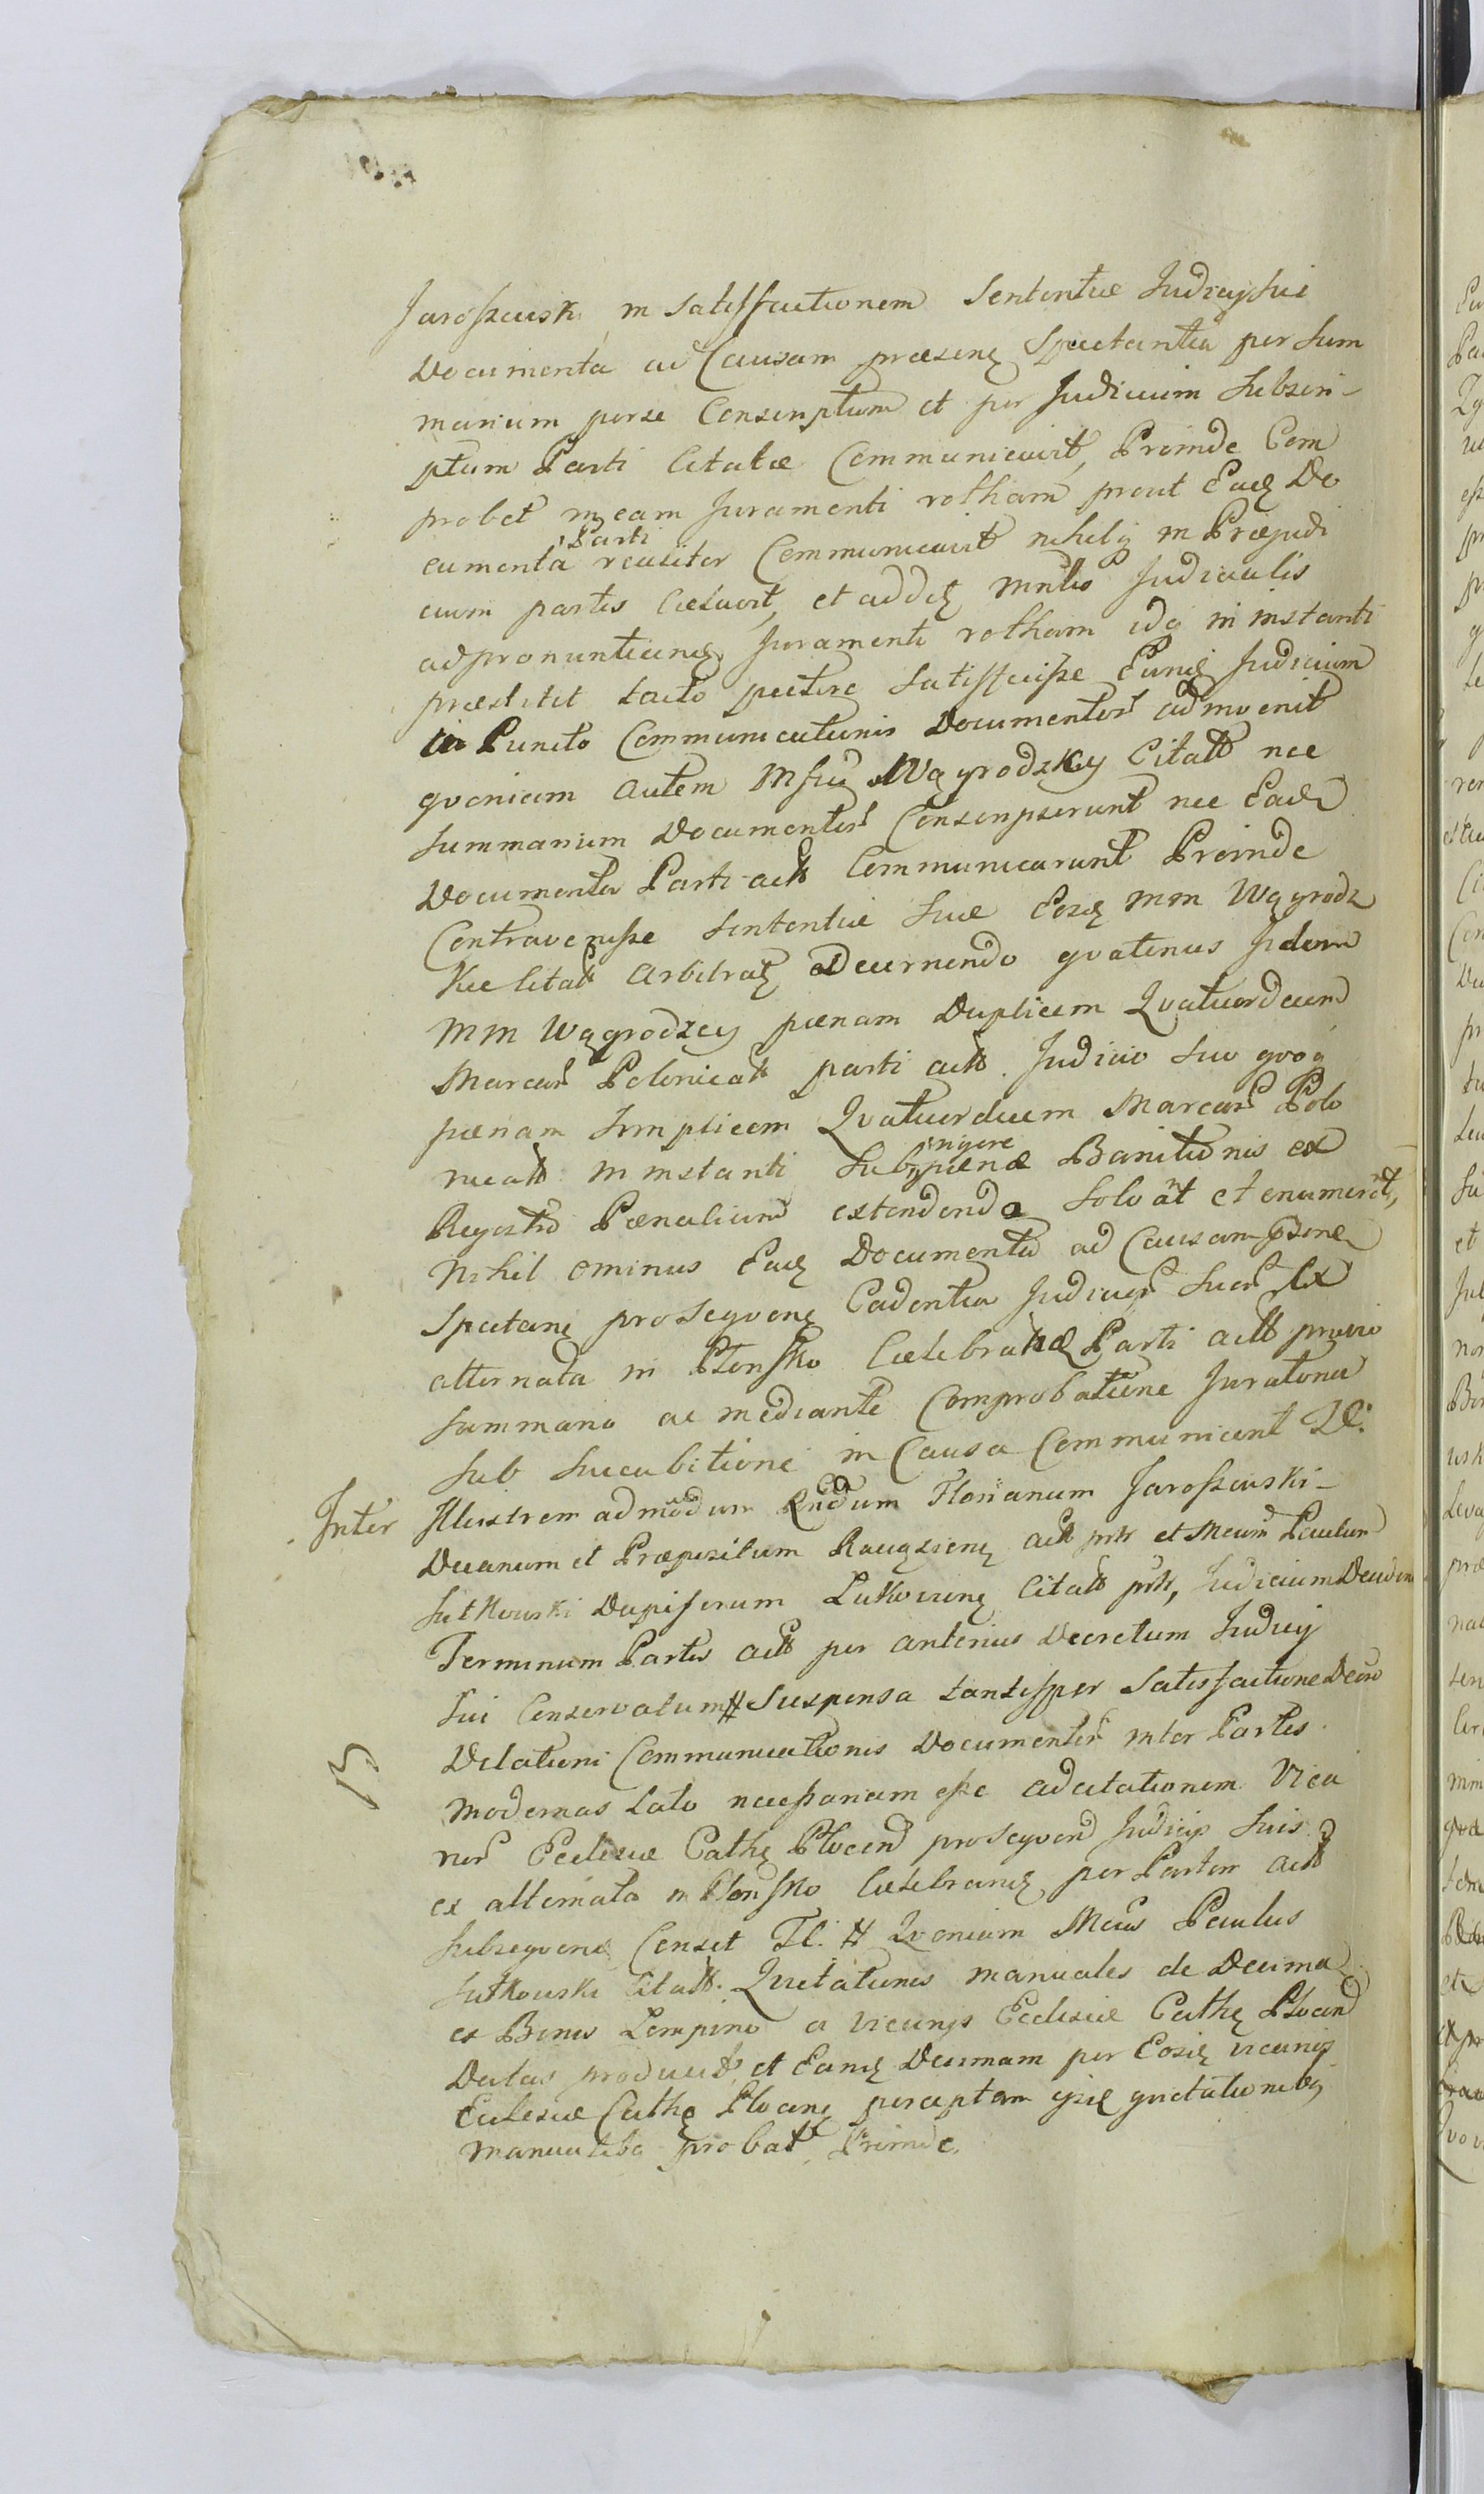 Jaroszewski in Satisfactionem Sententiæ Judicij sui
Documenta ad Causam præsenę Spectantia per Sum
marium per se Conscriptum et per Judicium Subscri-
ptum Parti Citatæ Communicavit, Proinde Com
probet in eam Juramenti rotham prout Eadę Do
cumenta Parti realiter Communicavit nihilq in Præjudi
cium partis Celavit, et addię Mnlio Judicialis
adpronuntianę Juramenti rotham idq in instanti
præstitit tacto pectore Satisfecisse Eunę Judicium
in Puncto Communicationis Documentor adinvenit
qvoniam autem Mfici Wągrodzky Citatt nec
Summarium Documentor Conscripserunt nec Eadę
Documenta Parti actt Communicarunt Proinde
Contravenisse Sententiæ Suæ Eosę MM Wągrodz
kie Citatt Arbitratę Decernendo qvatenus Iidem
MM Wągrodzcy pænam Duplicem Qvatuordecim
Marcar Polonicatt parti actt. Judicio Suo qvoq
pænam Simplicem Qvatuordecim Marcar Polo
nicatt in instanti Sub rigore pænæ Banitionis ex
Regestro Pænalium extendendæ Solvāt et enumerēt,
Nihil ominus Eadę Documenta ad Causam pšnę
Spectanę proseqvenę Cadentia Judicior Suor ex
alternata in Płonsko Celebrandæ Parti actt prævio
Summario ac mediante Comprobatione Juratoria
Sub Succubitione in Causa Communicent Tt.
Inter Illustrem admodum Rndum Florianum Jaroszewski
Decanum et Præpositum Raciązienę actt prtt et Mcum Paulum
Sutkowski Dapiferum Łukovienę Citatt prtt, Judicium
Terminum Partis actt per anterius Decretum Judicij
Sui Conservatum # Suspensa tantisper Satisfactione Decro
Dilationi Communicationis Documentor inter Partes
modernas Lato necessarium esse adcitationem Vica
rior Ecclesiæ Cathę Plocenę proseqvenę Judicijs Suis
ex alternata in Płonsko Celebranę per Partem actt
Subseqvenę Censet Tt. # Qvoniam Mcus Paulus
Sutkowski Citatt. Qvietationes manuales de Decima
ex Bonis Lempino a Vicarijs Ecclesiæ Cathę Plocenę
Datas produxit, et Eanę Decimam per Eosdę vicarijs
Ecclesiæ Cathę Plocenę perceptam ijsdę qvietationibq
manualibq probat Proinde